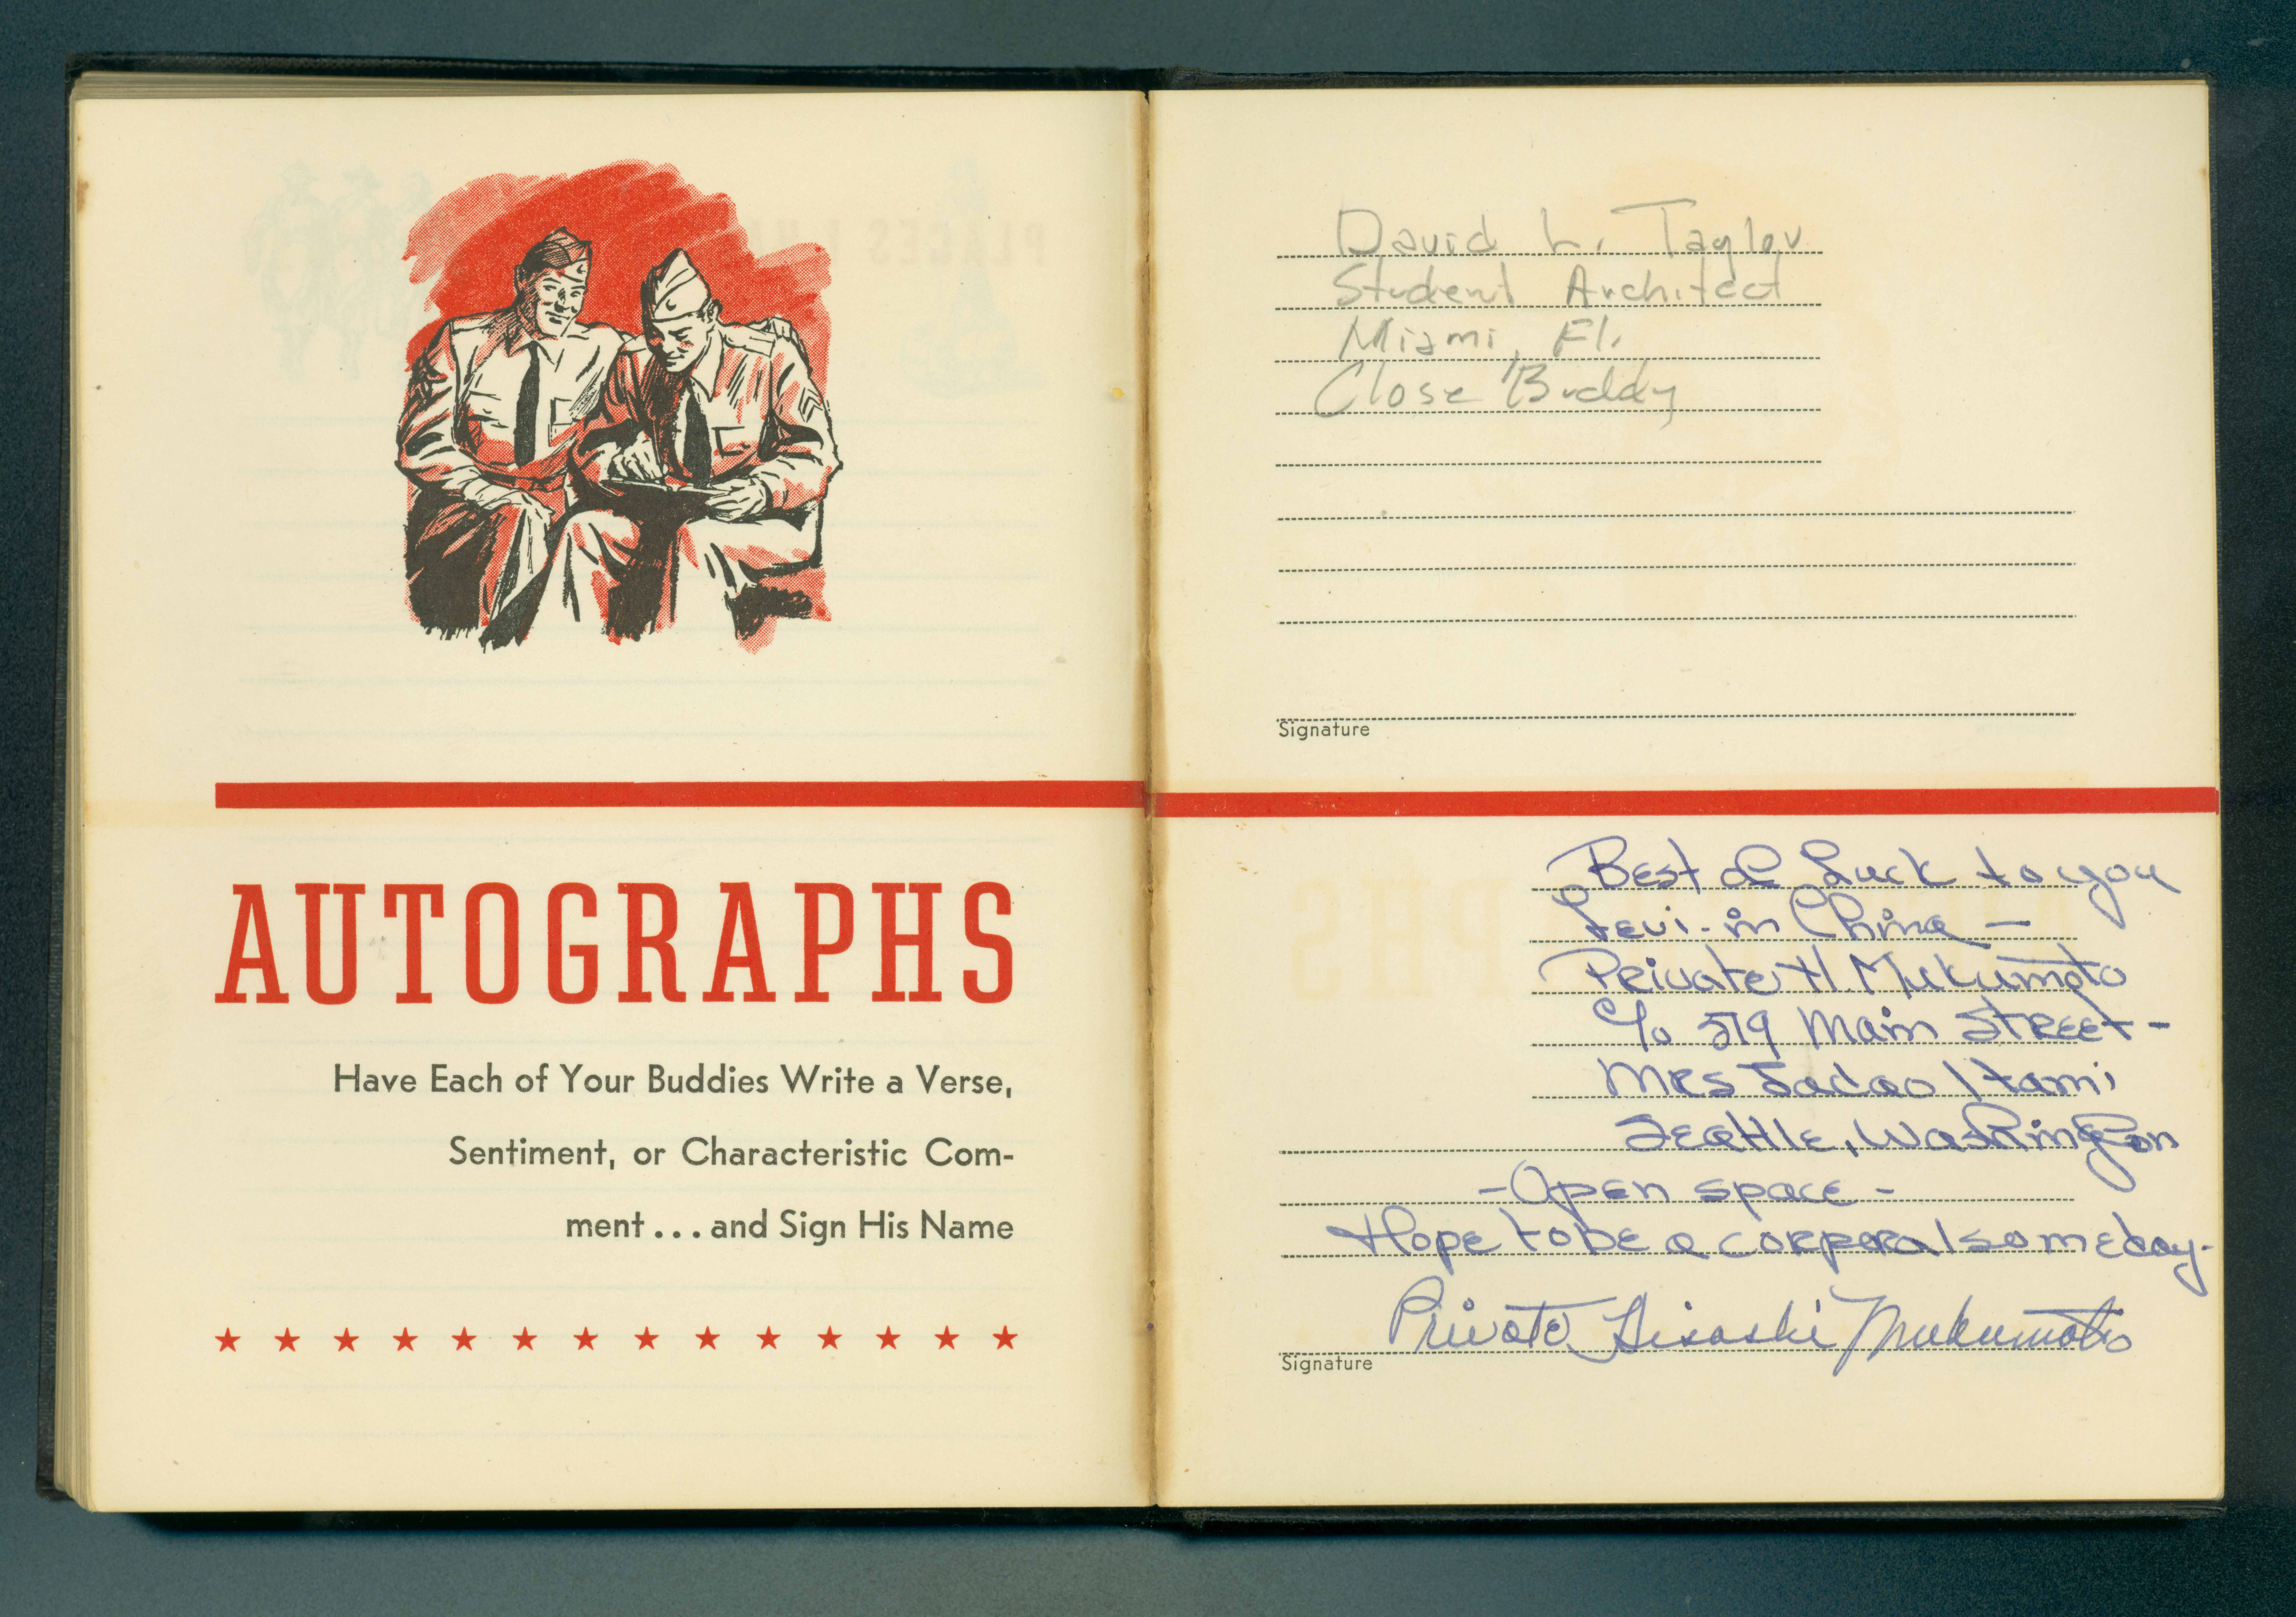 AUTOGRAPHS
Have Each of Your Buddies Write a Verse,
Sentiment, or Characteristic Com-
ment... and Sign His Name
David L. Taylor
Student Architect
Miami, Fl.
Close Buddy
Signature
Best of Luck to you
Levi - in China —
Private H. Mukumoto
c/o 519 Main Street -
Mrs Tadao Itami
Seattle, Washington
- Open space -
Hope to be a corporal someday.
Private Hisashi Mukumoto
Signature